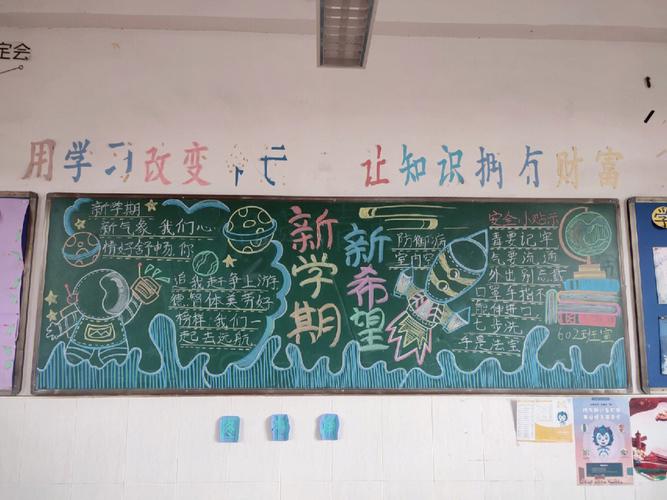 定会
用学习改变
让知识拥有财富
新学期
新气象 我们心
情好舒畅 你
追我赶争上游
德智体美劳好
榜样 我们一
起去远航
新学期
新希望
安全小贴示
防御病
毒要记牢
室内空
气要流通
外出别忘戴
口罩手指不
能伸进口
七步洗
手是法宝
602班宣